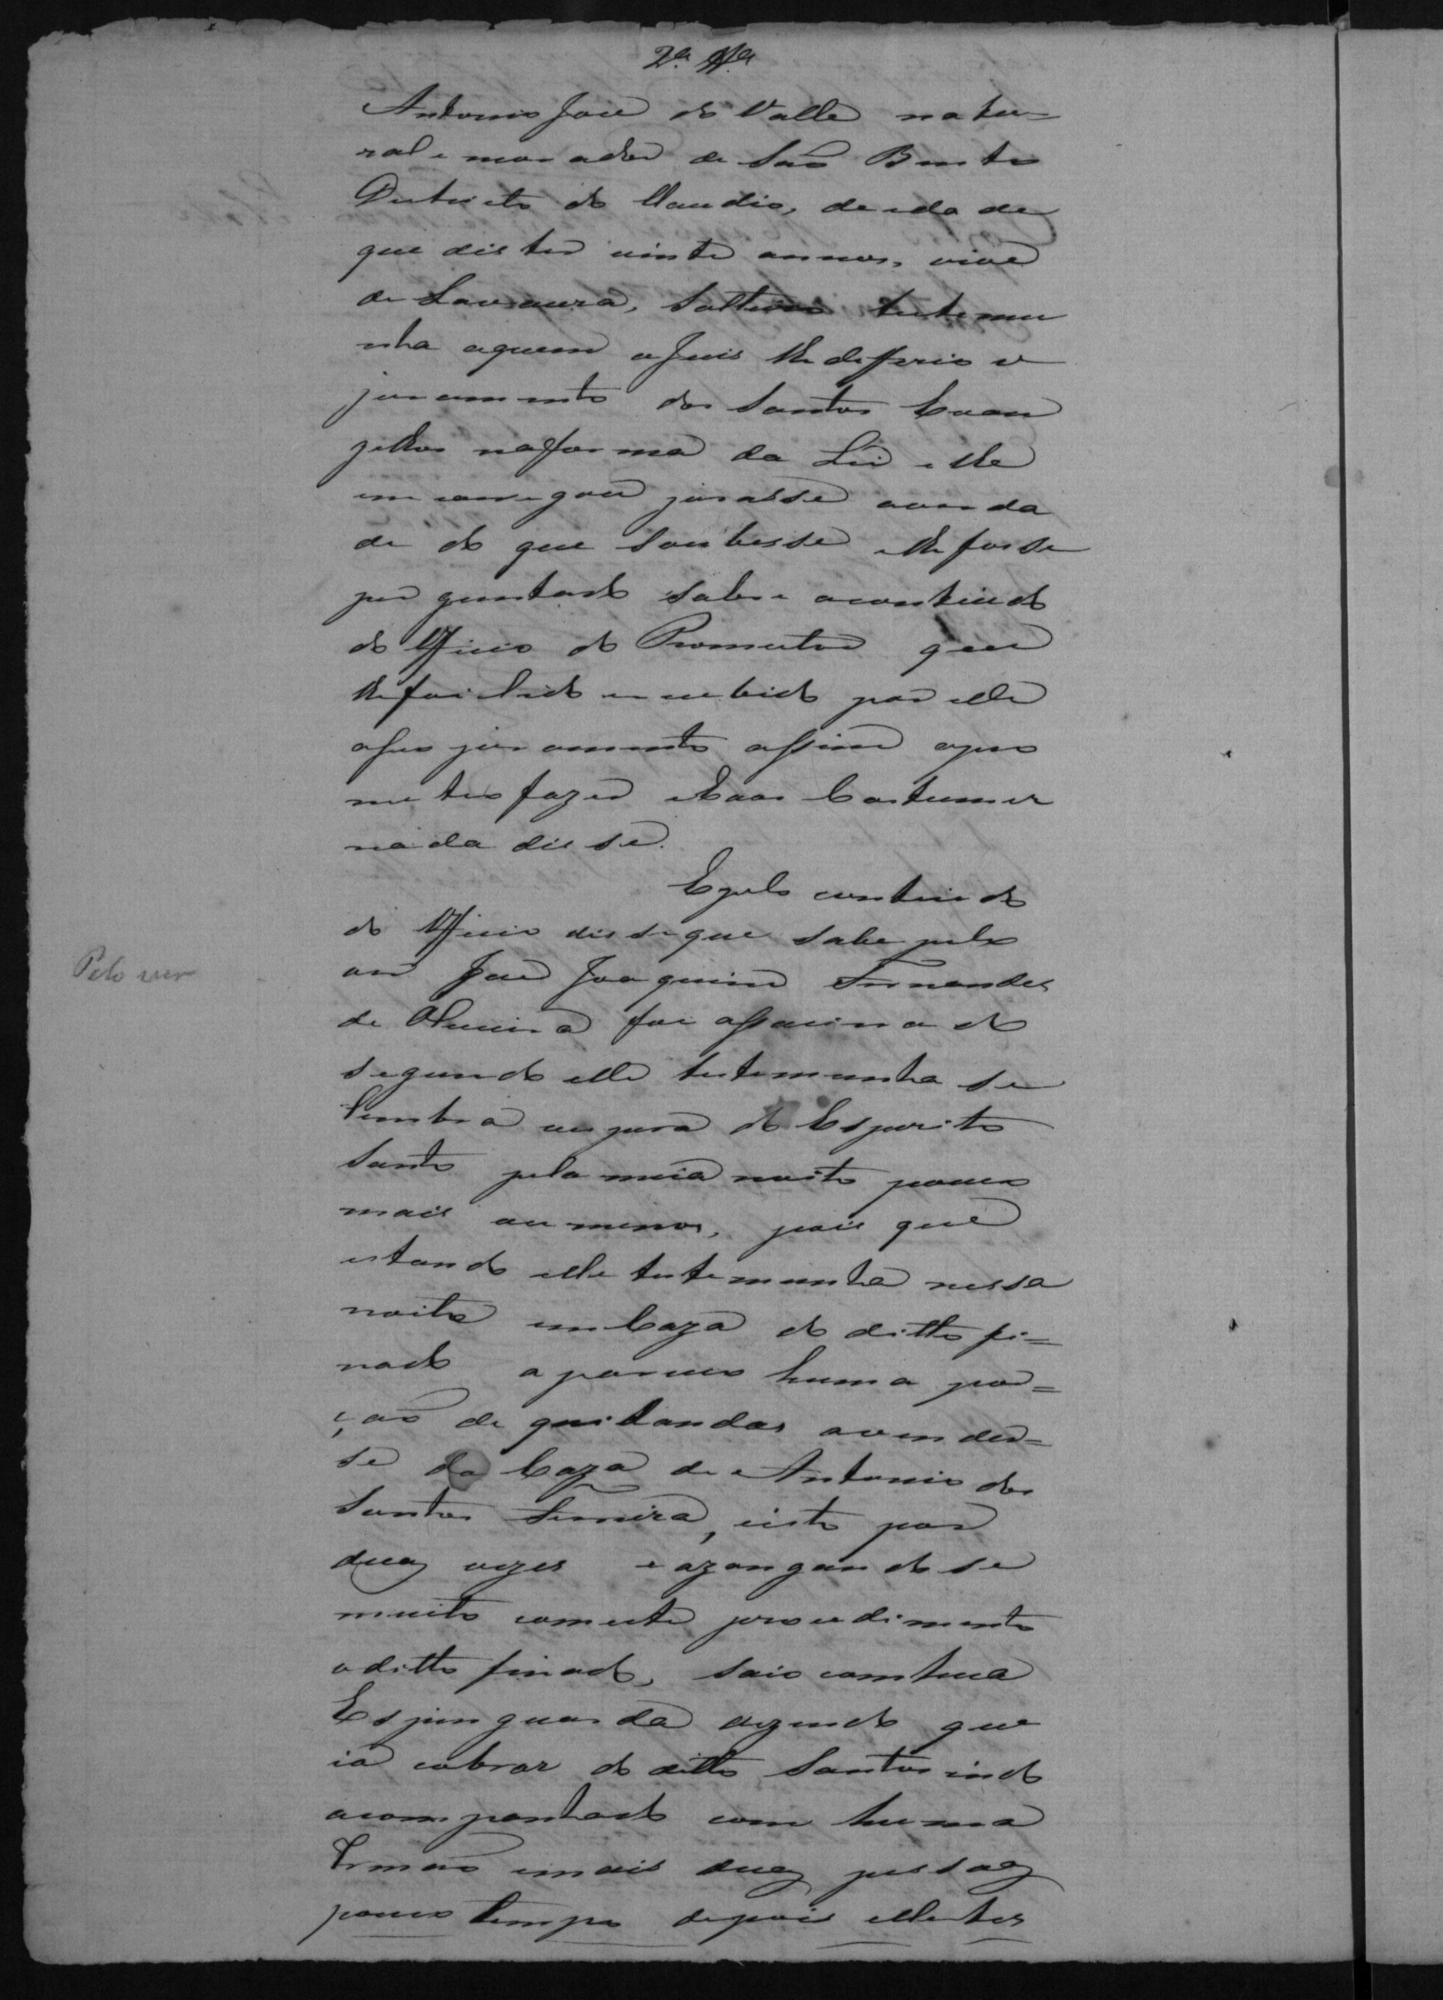 2.ª Tt.ª
Antonio Jose do Valle natu=
ral e morador de São Bento
Destricto do Claudio, de eda de
que dis ter vinte annos, vive
de Lavoura, Solteiro testemu
nha aquem o Juis lhe defferio o
juramento dos Santos Evan
gelhos na forma da Lei elhe
encarregou jurasse averda
de do que soubesse elhe fosse
perguntado sobre o contheudo
do Officio do Promutor que
lhe foi lido e recebido por elle
o seo juramento assim o pro
meteo fazer e aos Costumes
nada disse.
E pelo contheudo
do Officio disse que sabe pelo
ver
Pelo ver
Jose Joaquim Fernandes
de Oliveira foi assacinado
segundo elle testemunha se
lembra vespora do Espirito
Santo pela meia noite pouco
mais ou menos, pois que
estando elle testemunha nessa
noite em Caza do ditto fi=
nado apareceo huma por=
ção de quitandas avender=
se da Caza de Antonio dos
Santos Ferreira, e isto por
duas vezes e azangando se
muito com este procedimento
o ditto finado, saio com hua
Espinguarda dizendo que
ia cobrar do ditto Santos indo
acompanhado com huma
Irmão e mais duas pessoas
pouco tempo depois elle tes